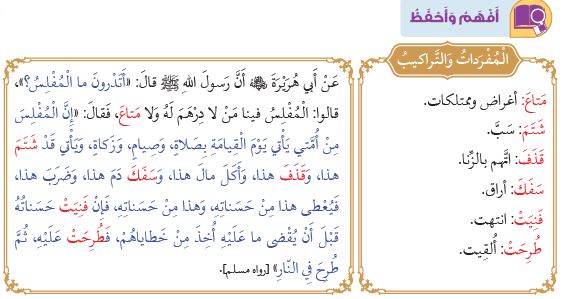 أَفْهَمُ وَأَحْفَظُ
الْمُفْرَداتُ وَالتَّراكيبُ
مَتاعَ: أغراض وممتلكات.
شَتَمَ: سَبَّ.
قَذَفَ: اتَّهم بالزِّنا.
سَفَكَ: أراق.
فَنِيَتْ: انتهت.
طُرِحَتْ: أُلقِيت.
عَنْ أَبي هُرَيْرَةَ ﷺ أَنَّ رَسولَ اللهِ ﷺ قالَ: «أَتَدْرونَ ما الْمُفْلِسُ؟»،
قالوا: الْمُفْلِسُ فينا مَنْ لا دِرْهَمَ لَهُ وَلا مَتاعَ، فَقالَ: «إِنَّ الْمُفْلِسَ
مِنْ أُمَّتي يَأْتي يَوْمَ الْقِيامَةِ بِصَلاةٍ، وَصِيامٍ، وَزَكاةٍ، وَيَأْتي قَدْ شَتَمَ
هذا، وَقَذَفَ هذا، وَأَكَلَ مالَ هذا، وَسَفَكَ دَمَ هذا، وَضَرَبَ هذا،
فَيُعْطى هذا مِنْ حَسَناتِهِ، وَهذا مِنْ حَسَناتِهِ، فَإِنْ فَنِيَتْ حَسَناتُهُ
قَبْلَ أَنْ يُقْضى ما عَلَيْهِ أُخِذَ مِنْ خَطاياهُمْ، فَطُرِحَتْ عَلَيْهِ، ثُمَّ
طُرِحَ في النّارِ» [رواه مسلم].